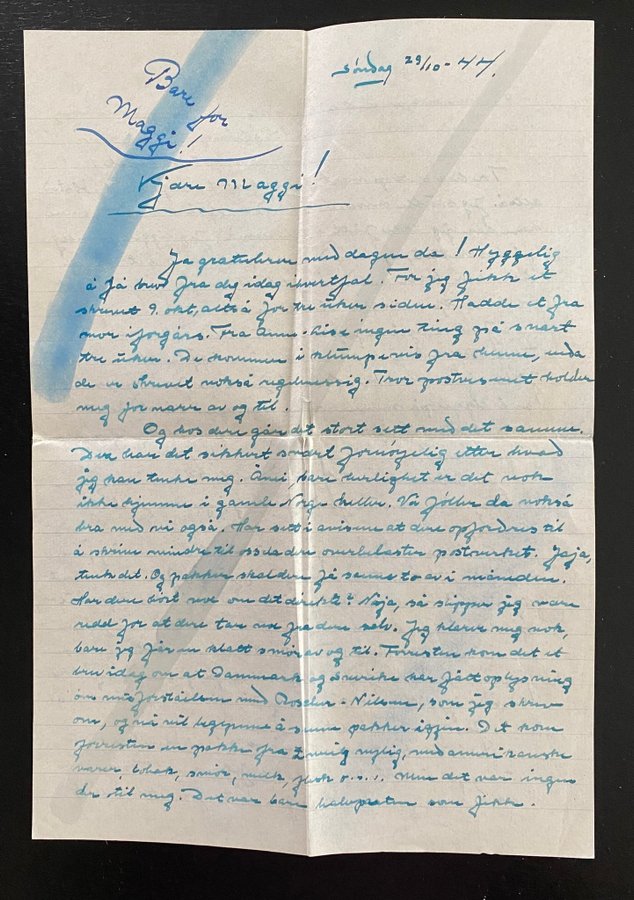 Søndag 29/10-44.
Bare for
Maggi!
Kjære Maggi!
Ja gratulerer med dagen da! Hyggelig
å få brev fra deg idag ihvertfal. For jeg fikk et
skrevet 9. okt, altså for tre uker siden. Hadde et fra
mor iforgårs. Fra Anne-Lise ingen ting på snart
tre uker. De kommer i klumpevis fra henne, enda
de er skrevet nokså regelmessig. Tror postvesenet holder
meg for narr av og til.
Og hos dere går det stort sett med det samme.
Dere har det sikkert svært fornøyelig etter hvad
jeg kan tenke meg. Ånei bare herlighet er det nok
ikke hjemme i gamle Norge heller. Vi føller da nokså
bra med vi også. Har sett i avisene at dere opfordres til
å skrive mindre til oss da dere overbelaster postverket. Jaja,
tenk det. Og pakker skal dere få sende to av i måneden.
Har dere hørt noe om det direkte? Nåja, så slipper jeg være
redd for at dere tar noe fra dere selv. Jeg klarer meg nok,
bare jeg får en klatt smør av og til. Forresten kom det et
brev idag om at Danmark og Sverike har fått oplysning
om misforståelsen med Nilsen, som jeg skrev
om, og nå vil begynne å sende pakker igjen. Det kom
forresten en pakke fra nylig, med amerikanske
varer, tobak, smør, melk, o.s.v. Men det var ingen
der til meg. Det var bare som fikk.